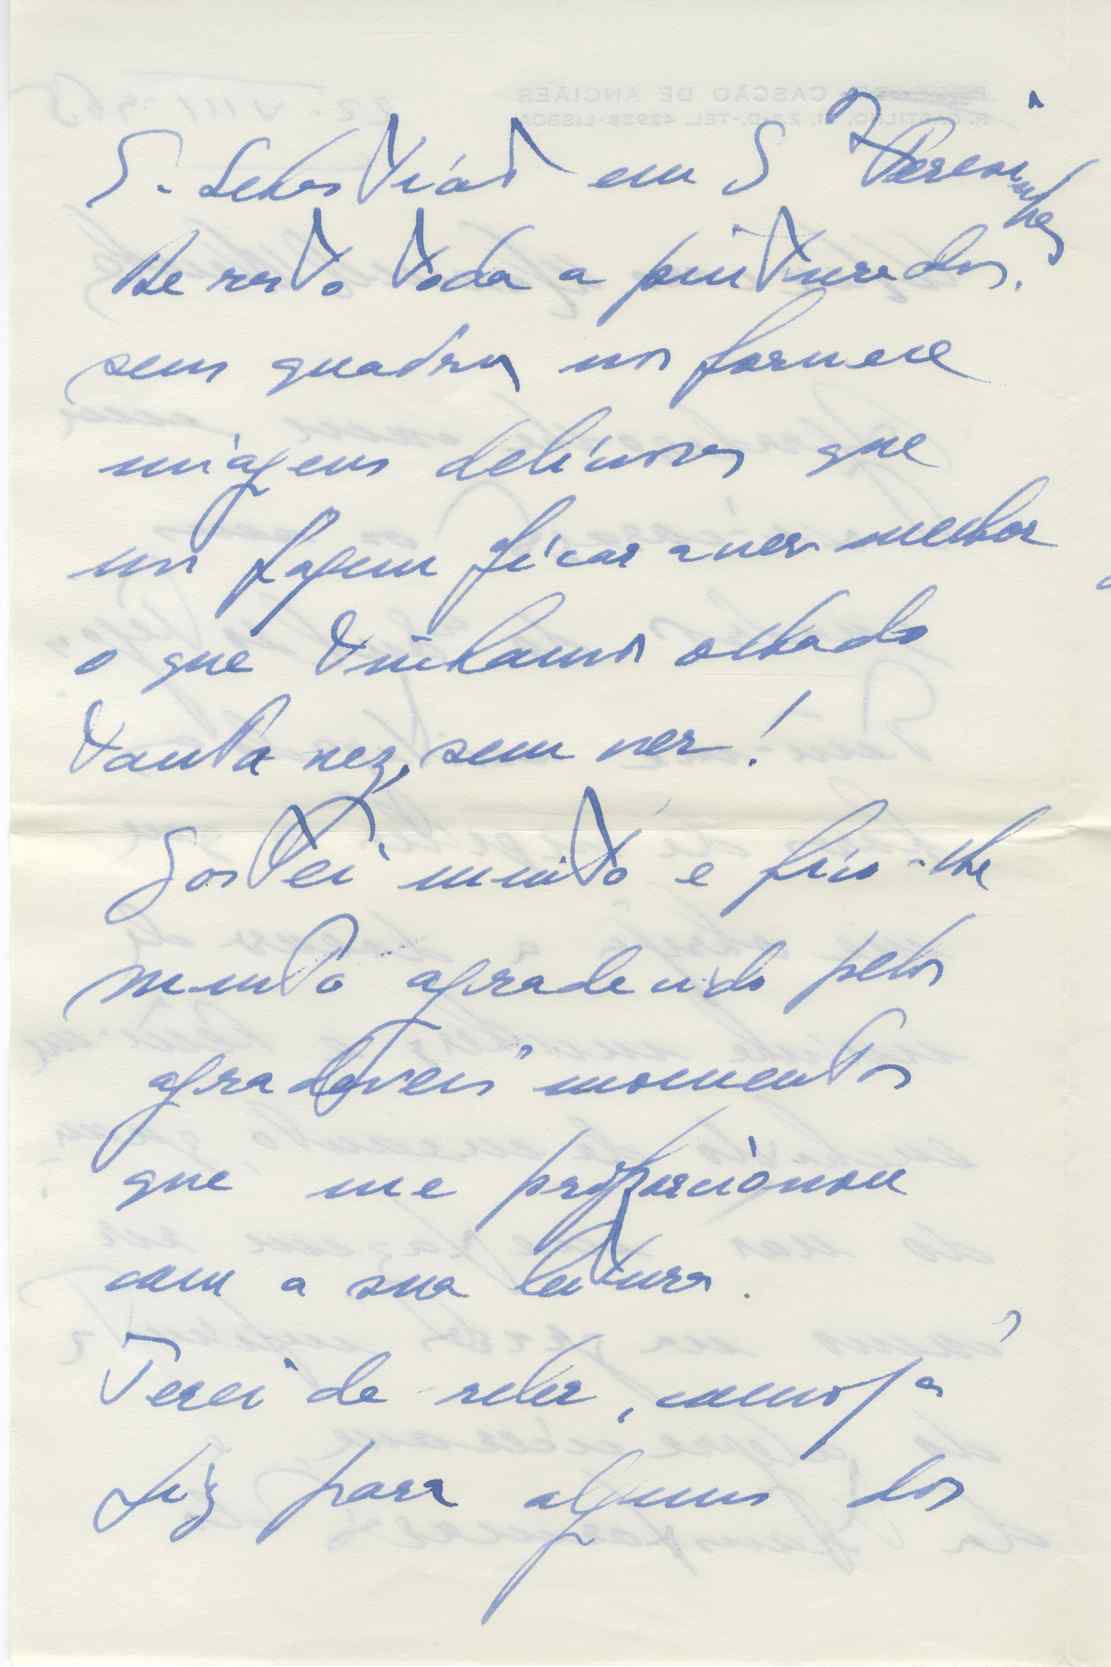 S. Sebastião em Sta Teresinha
De resto toda a pintura dos
seus quadros nos fornece
imagens deliciosas que
nos fazem ficar a ver melhor
o que tinhamos olhado
tanta vez, sem ver!
Gostei muito e fico-lhe
muito agradecido pelos
agradáveis momentos
que me proporcionou
com a sua leitura.
Terei de reler, como já
fiz para alguns dos